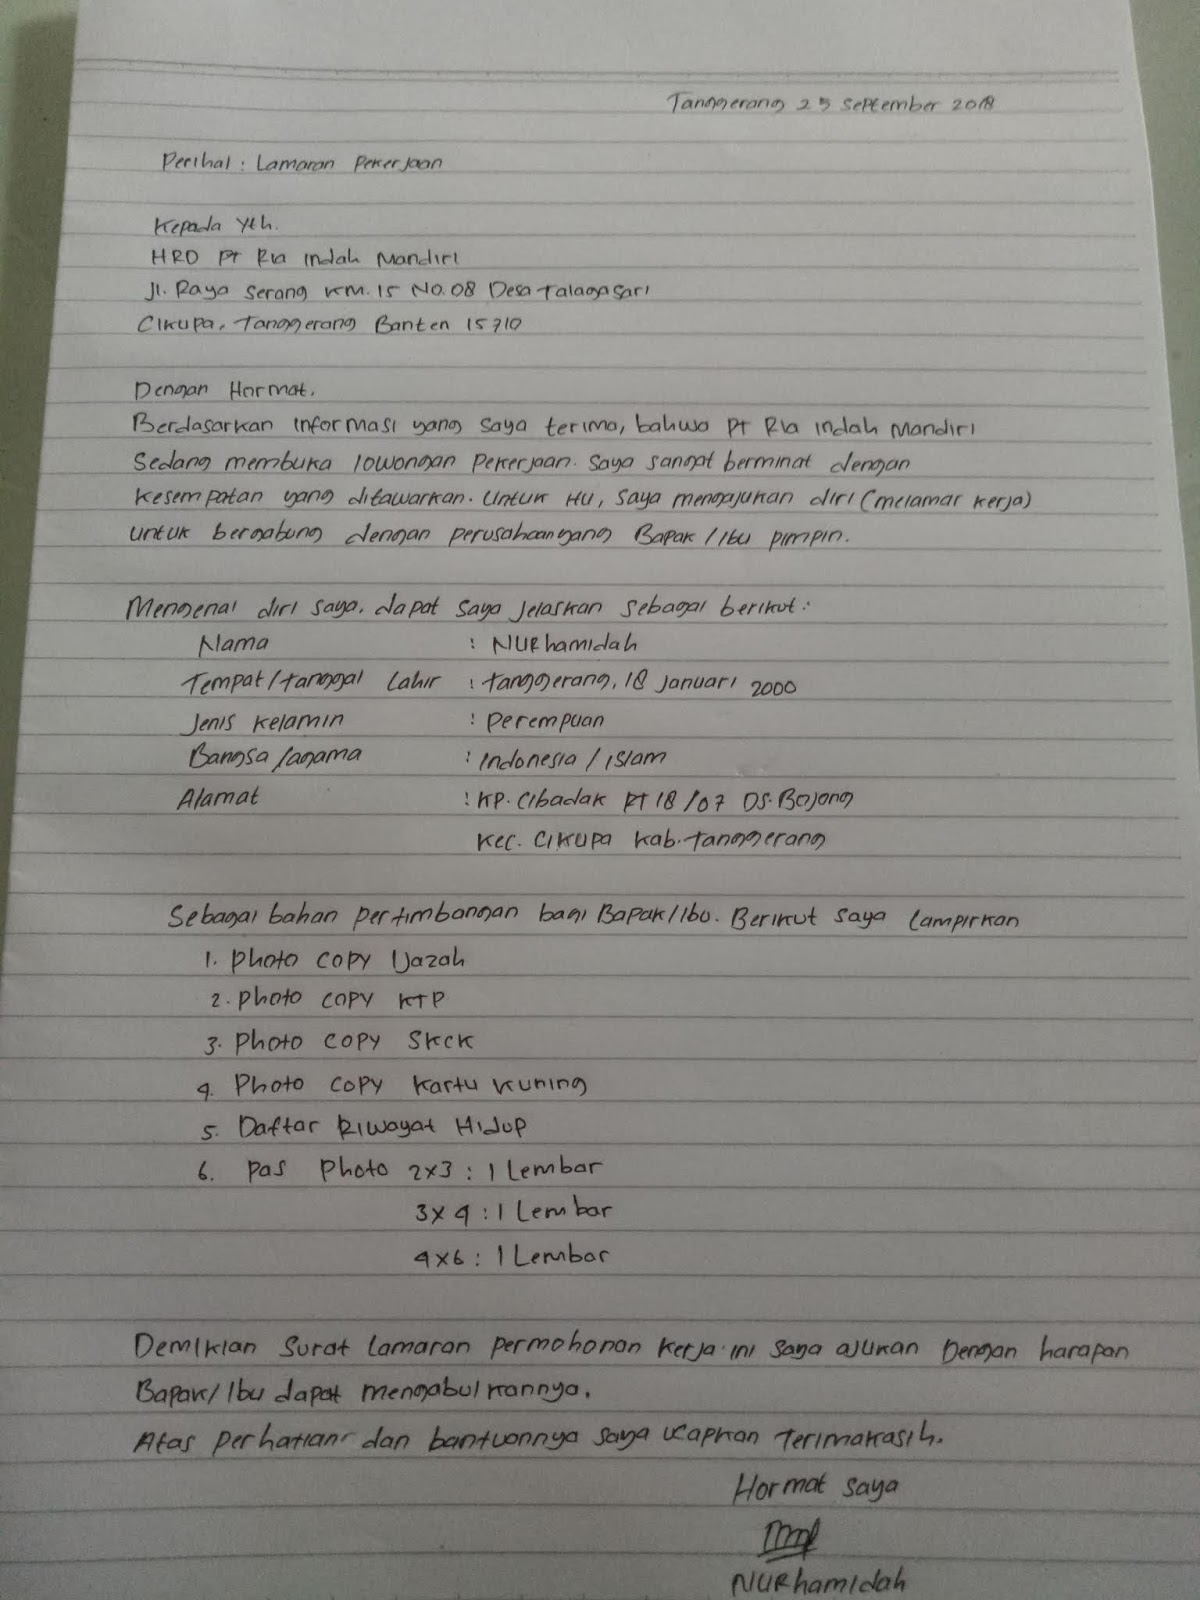 Tanggerang 25 September 2018
Perihal : Lamaran Pekerjaan
Kepada Yth.
HRD PT Ria Indah Mandiri
Jl. Raya Serang KM. 15 No. 08 Desa Talagasari
Cikupa, Tanggerang Banten 15710
Dengan Hormat,
Berdasarkan informasi yang saya terima, bahwa PT Ria Indah Mandiri
Sedang membuka lowongan Pekerjaan. Saya sangat berminat dengan
Kesempatan yang ditawarkan. Untuk itu, saya mengajukan diri (melamar kerja)
untuk bergabung dengan perusahaanyang Bapak / ibu pimpin.
Mengenai diri saya, dapat saya jelaskan sebagai berikut :
Nama : NURhamidah
Tempat / tanggal Lahir : tanggerang, 18 Januari 2000
Jenis Kelamin : Perempuan
Bangsa / agama : Indonesia / islam
Alamat : KP. Cibadak RT 18 / 07 DS. Bojong
Kec. Cikupa Kab. Tanggerang
Sebagai bahan pertimbangan bagi Bapak/Ibu. Berikut saya lampirkan
1. Photo Copy Ijazah
2. Photo Copy KTP
3. Photo Copy SKCK
4. Photo Copy Kartu Kuning
5. Daftar Riwayat Hidup
6. Pas Photo 2x3 : 1 Lembar
3x4 : 1 Lembar
4x6 : 1 Lembar
Demikian Surat lamaran permohonan Kerja ini saya ajukan Dengan harapan
Bapak/Ibu dapat mengabulkannya.
Atas perhatian dan bantuannya saya ucapkan Terimakasih.
Hormat saya
NURhamidah